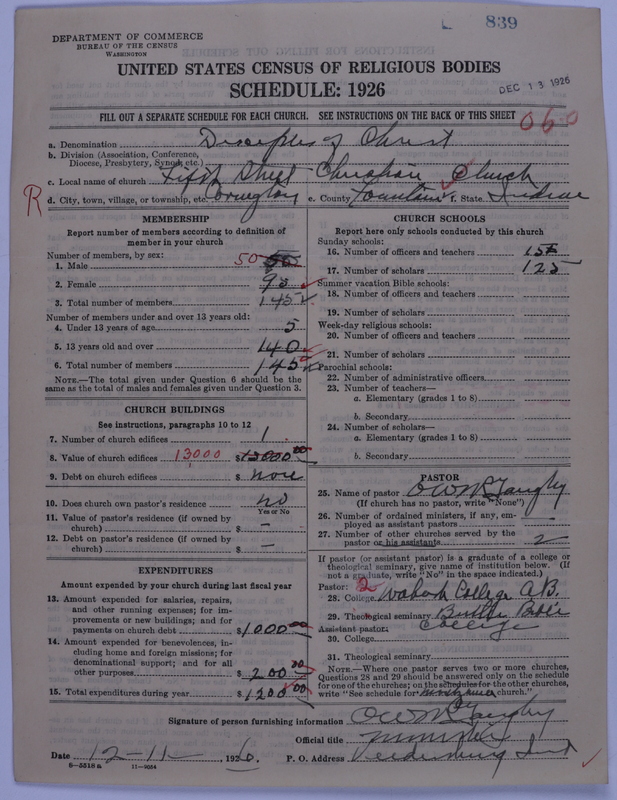 839
DEPARTMENT OF COMMERCE
BUREAU OF THE CENSUS
WASHINGTON
UNITED STATES CENSUS OF RELIGIOUS BODIES
SCHEDULE: 1926
DEC 13 1926
FILL OUT A SEPARATE SCHEDULE FOR EACH CHURCH. SEE INSTRUCTIONS ON THE BACK OF THIS SHEET
060
a. Denomination Disciples of Christ
b. Division (Association, Conference,
Diocese, Presbytery, Synod, etc.)
c. Local name of church Fifth Street Christian Church
R d. City, town, village, or township, etc. Covington e. County Fountain f. State Indiana
MEMBERSHIP
Report number of members according to definition of
member in your church
Number of members, by sex:
1. Male 50 50
2. Female 95
3. Total number of members 145
Number of members under and over 13 years old:
4. Under 13 years of age 5
5. 13 years old and over 140
6. Total number of members 145
NOTE.—The total given under Question 6 should be the
same as the total of males and females given under Question 3.
CHURCH BUILDINGS
See instructions, paragraphs 10 to 12
7. Number of church edifices 1
8. Value of church edifices 13000 $13000 00
9. Debt on church edifices $ None
10. Does church own pastor's residence no
Yes or No
11. Value of pastor's residence (if owned by
church) $ —
12. Debt on pastor's residence (if owned by
church) $ —
EXPENDITURES
Amount expended by your church during last fiscal year
13. Amount expended for salaries, repairs,
and other running expenses; for im-
provements or new buildings; and for
payments on church debt $1000 00
14. Amount expended for benevolences, in-
cluding home and foreign missions; for
denominational support; and for all
other purposes $200 00
15. Total expenditures during year $1200 00
CHURCH SCHOOLS
Report here only schools conducted by this church
Sunday schools:
16. Number of officers and teachers 15
17. Number of scholars 125
Summer vacation Bible schools:
18. Number of officers and teachers
19. Number of scholars
Week-day religious schools:
20. Number of officers and teachers
21. Number of scholars
Parochial schools:
22. Number of administrative officers
23. Number of teachers—
a. Elementary (grades 1 to 8)
b. Secondary
24. Number of scholars—
a. Elementary (grades 1 to 8)
b. Secondary
PASTOR
25. Name of pastor O W McGaughy
(If church has no pastor, write "None")
26. Number of ordained ministers, if any, em-
ployed as assistant pastors —
27. Number of other churches served by the
pastor or his assistants 2
If pastor (or assistant pastor) is a graduate of a college or
theological seminary, give name of institution below. (If
not a graduate, write "No" in the space indicated.)
Pastor: 2
28. College Wabash College A.B.
29. Theological seminary Butler
Assistant pastor: College
30. College
31. Theological seminary
NOTE.—Where one pastor serves two or more churches,
Questions 28 and 29 should be answered only on the schedule
for one of the churches; on the schedules for the other churches,
write "See schedule for church."
Signature of person furnishing information O W McGaughy
Official title minister
Date 12-11-, 1926. P. O. Address Veedersburg Ind
8—5518 a 11—9684